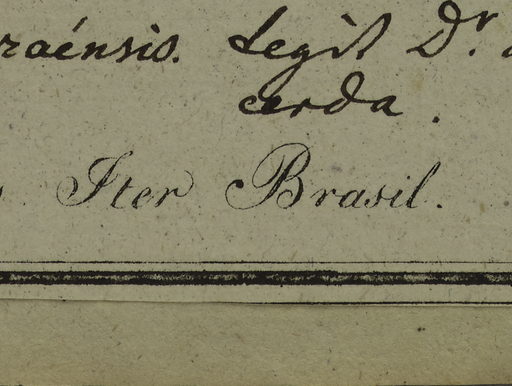 raénsis. Legit Dr.
cerda.
Iter Brasil.